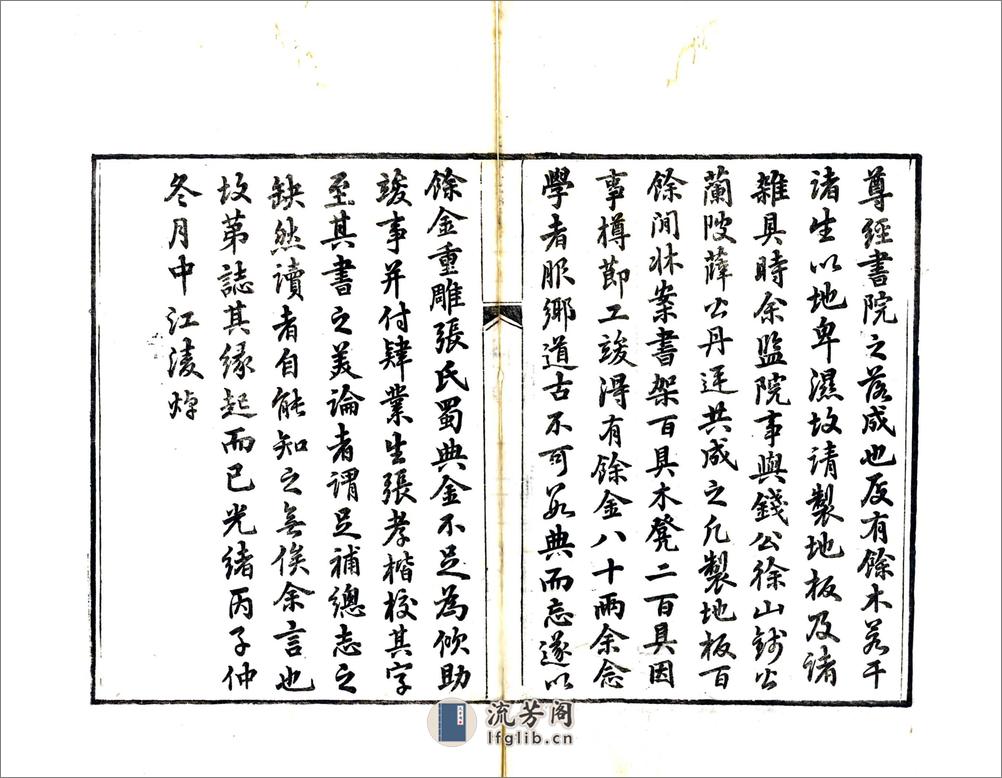 尊經書院之落成也廠有餘木若干
諸生以地卑濕故請製地板及諸
雜具時余監院事與錢公徐山錢公
蘭陂薛公丹廷共成之凡製地板百
餘間牀案書架百具木凳二百具因
事樽節工竣得有餘金八十兩余念
學者服鄉道古不可數典而忘遂以
餘金重雕張氏蜀典金不足為佽助
竣事并付肄業生張孝楷校其字
至其書之美論者謂足補總志之
缺然讀者自能知之無俟余言也
故第誌其緣起而已光緒丙子仲
冬月中江淩
流芳阁
lfglib.cn